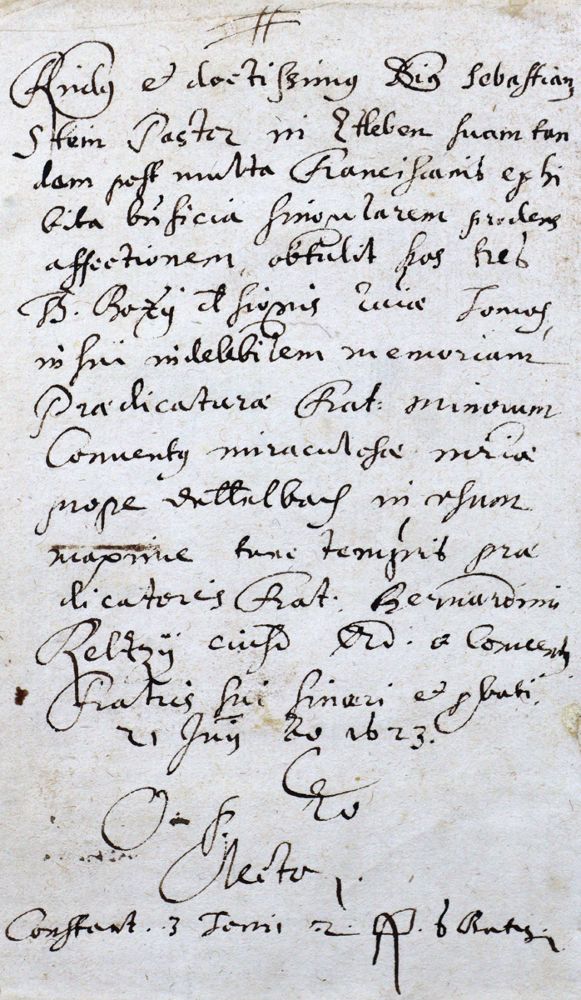 Rndus et doctissimus Dns Sebastian
Stein Pastor in Etleben suam tan
dem post multa Franciscanis exhi
bita bnficia singularem prodens
affectionem, obtulit hos tres
B. Tomos,
in sui indelebilem memoriam
Prædicaturæ Frat: Minorum
Conventus miraculosæ
prope Dettelbach in usum
maxime tunc temporis præ
dicatoris Frat. Bernardini
Keltzii eiusd Ord. & Conventus
Fratris sui sinceri et
21 Junii Ao 1623.
Constant. 3 Tomi